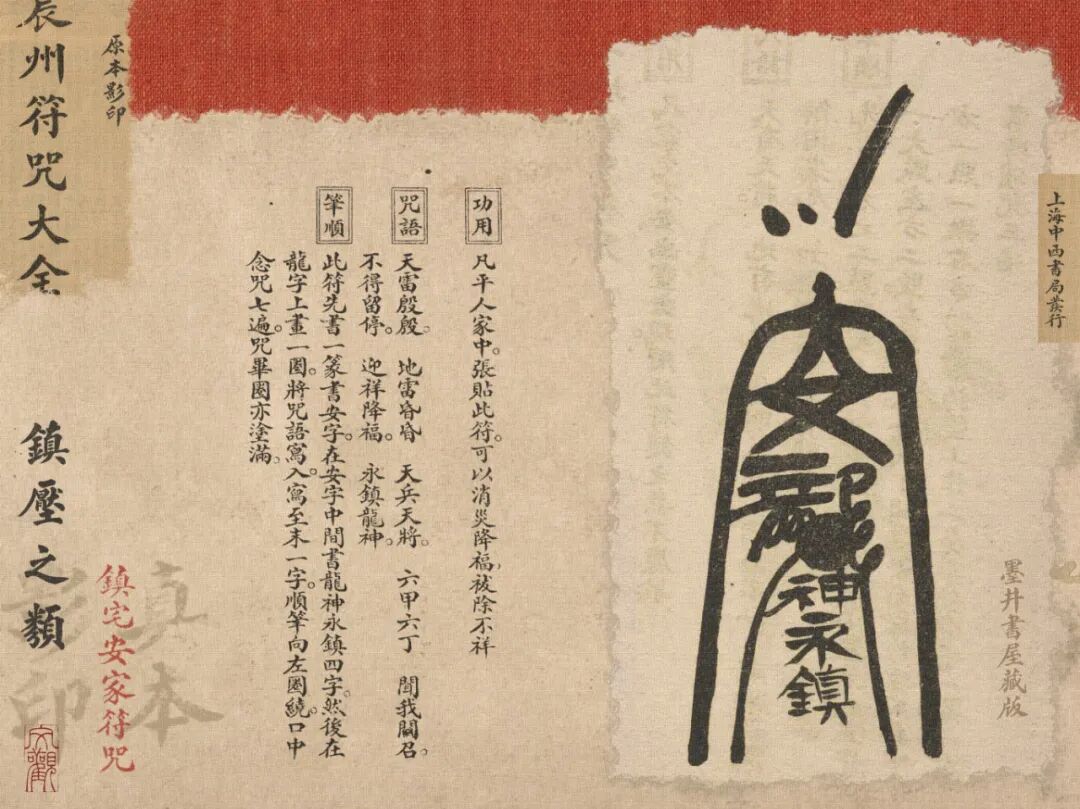 辰州符咒大全
原本影印
鎮壓之類
鎮宅安家符咒
真本
影印
上海中西書局發行
墨井書屋藏版
安
龍
神永鎮
功用
凡平人家中。張貼此符。可以消災降福。祓除不祥
咒語
天雷殷殷。 地雷昏昏 天兵天將。 六甲六丁 聞我關召。
不得留停。 迎祥降福。 永鎮龍神。
筆順
此符先書一篆書安字。在安字中間書龍神永鎮四字。然後在
龍字上畫一圈。將咒語寫入。寫至末一字。順筆向左圈繞。口中
念咒七遍。咒畢圈亦塗滿。